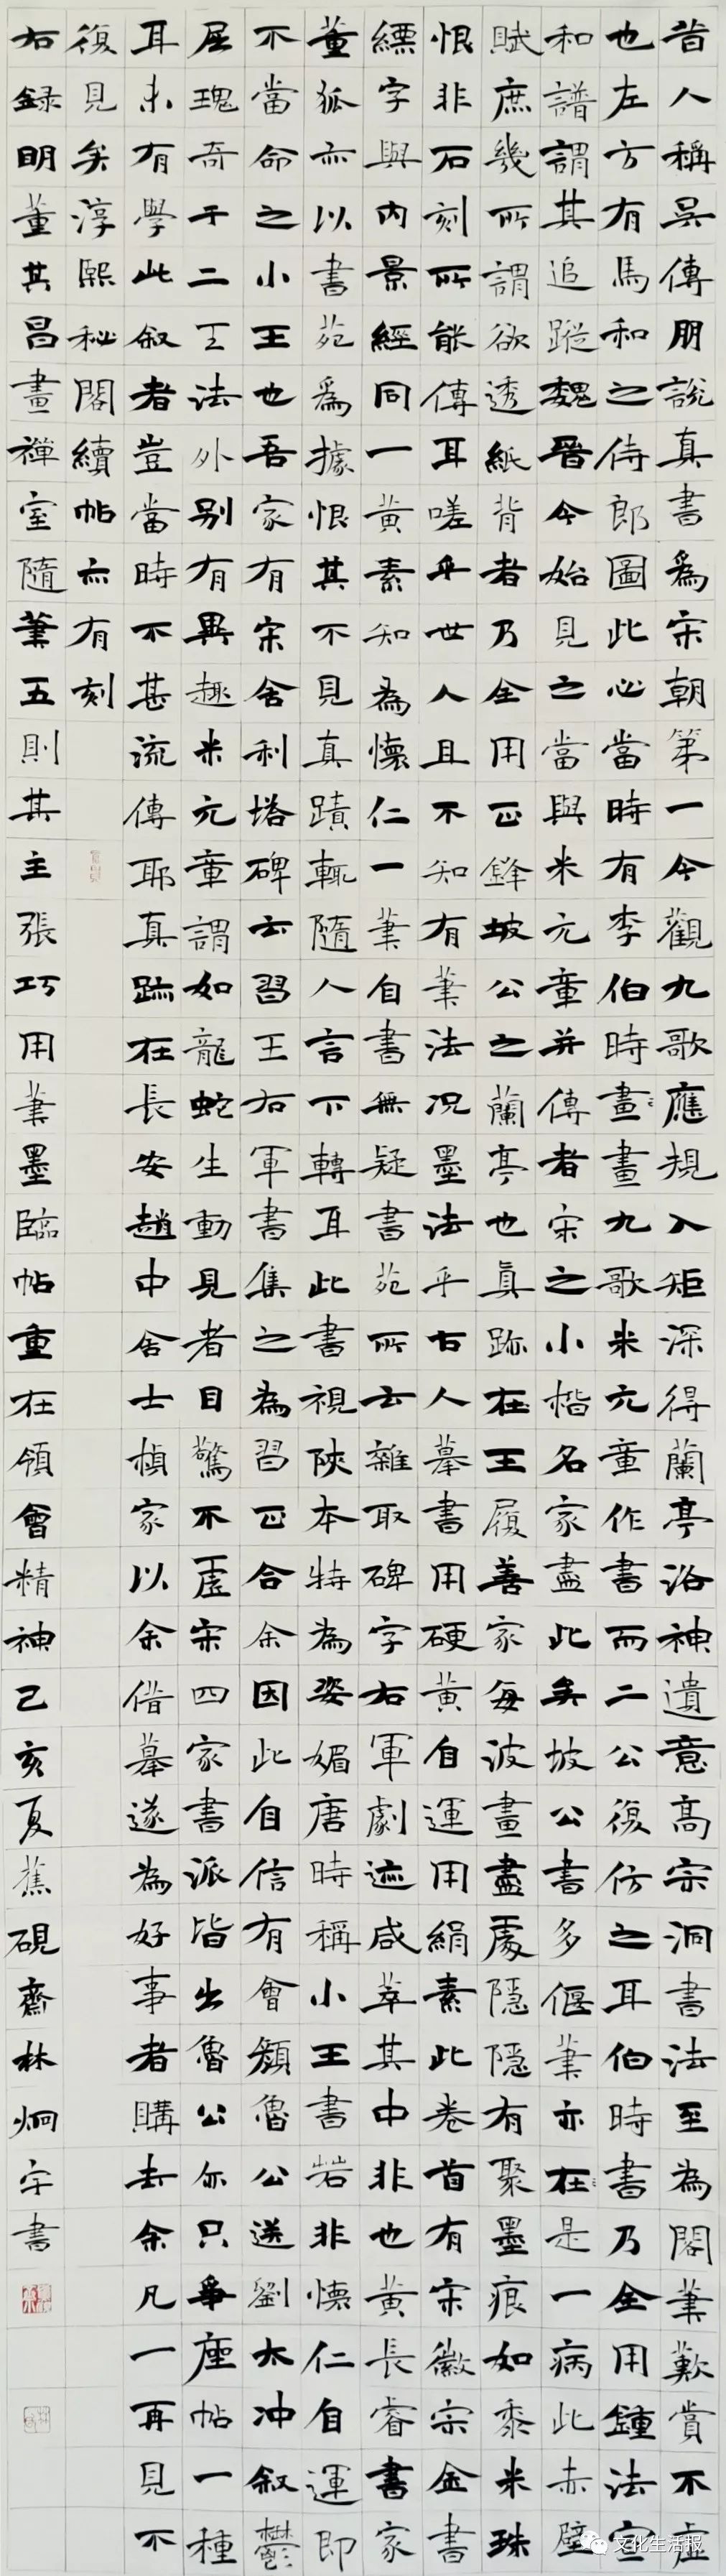 昔人稱吳傳朋說真書為宋朝第一今觀九歌應規入矩深得蘭亭洛神遺意高宗洞書法至為閣筆歎賞不虛
也左方有馬和之侍郎圖此心當時有李伯時畫畫九歌米元章作書而二公復仿之耳伯時書乃全用鍾法宣
和譜謂其追蹤魏晉今始見之當與米元章并傳者宋之小楷名家盡此矣坡公書多偃筆亦在是一病此赤壁
賦庶幾所謂欲透紙背者乃全用正鋒坡公之蘭亭也真跡在王履善家每波畫盡處隱隱有聚墨痕如黍米珠
恨非石刻所能傳耳嗟乎世人且不知有筆法況墨法乎古人摹書用硬黃自運用絹素此卷首有宋徽宗金書
縹字與內景經同一黃素知為懷仁一筆自書無疑書苑所云雜取碑字右軍劇迹咸萃其中非也黃長睿書家
董狐亦以書苑為據恨其不見真蹟輒隨人言下轉耳此書視陝本特為姿媚唐時稱小王書若非懷仁自運即
不當命之小王也吾家有宋舍利塔碑云習王右軍書集之為習正合余因此自信有會顏魯公送劉太冲叙鬱
屈瑰奇于二王法外别有異趣米元章謂如龍蛇生動見者目驚不虛宋四家書派皆出魯公亦只爭座帖一種
耳未有學此叙者豈當時不甚流傳耶真跡在長安趙中舍士楨家以余借摹遂為好事者購去余凡一再見不
復見矣淳熙秘閣續帖亦有刻
右録明董其昌畫禪室隨筆五則其主張巧用筆墨臨帖重在領會精神己亥夏蕉硯齋林炯宇書
文化生活报